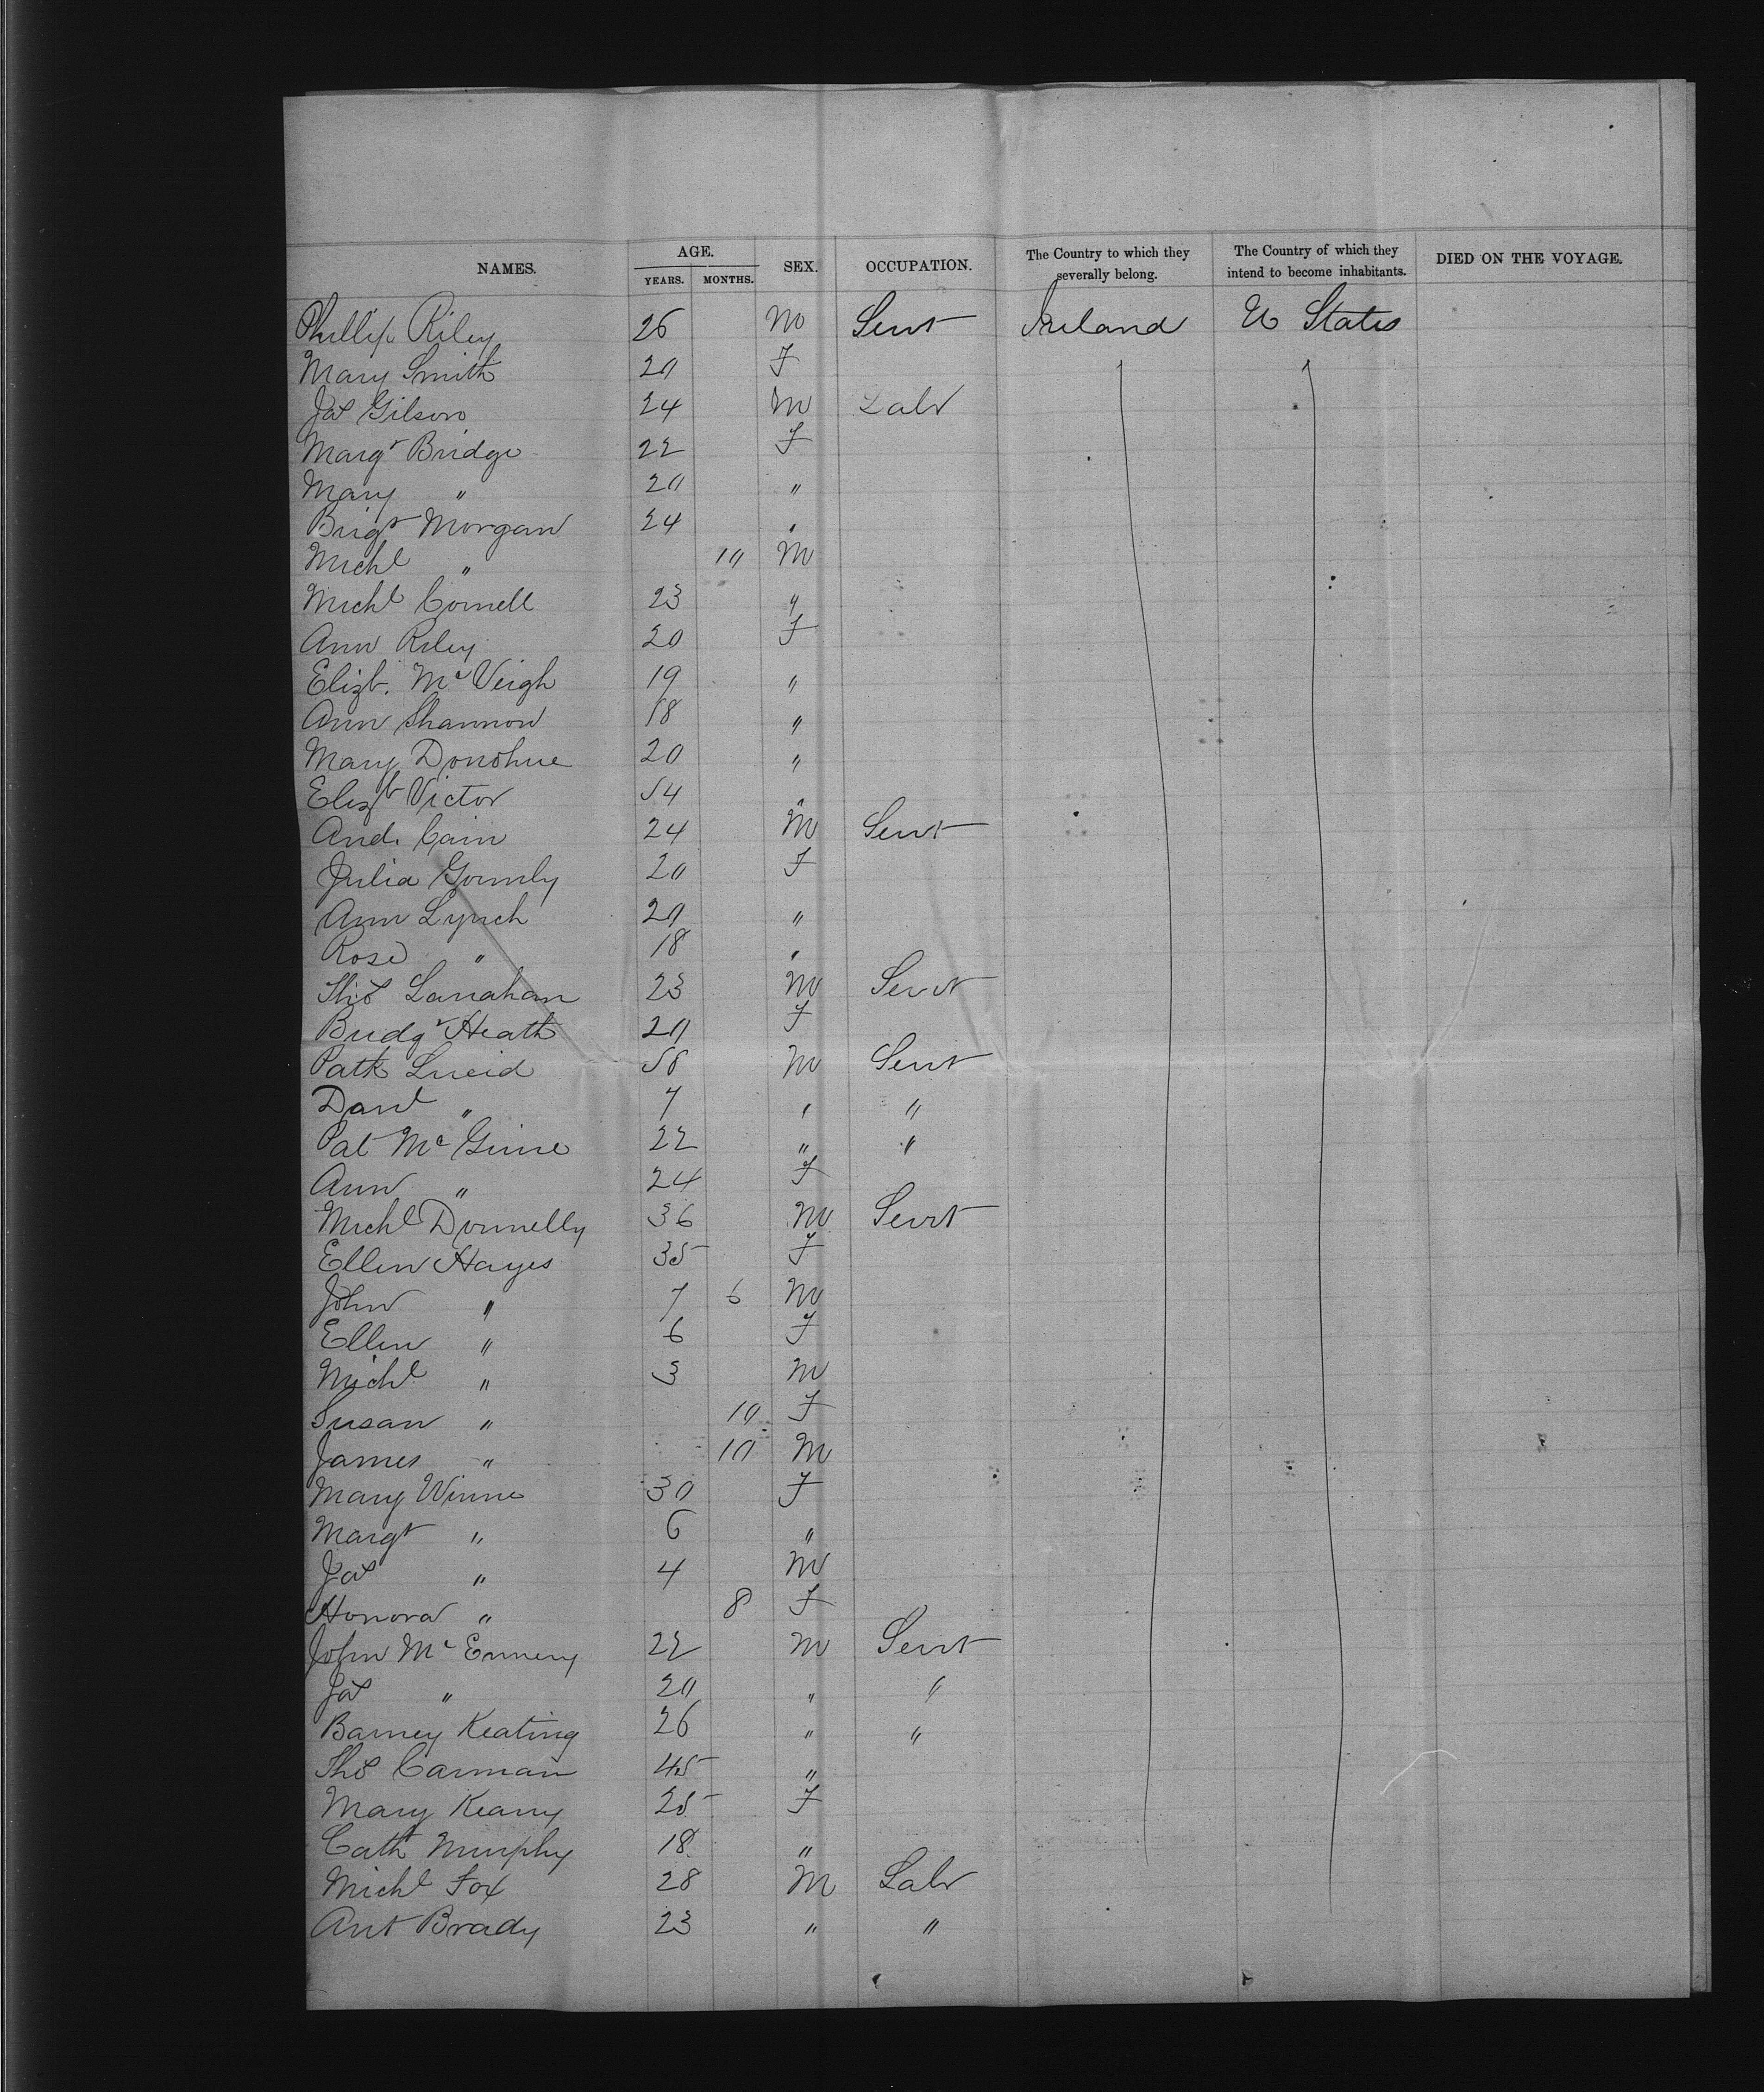 NAMES. AGE. YEARS. MONTHS. SEX. OCCUPATION. The Country to which they severally belong. The Country of which they intend to become inhabitants. DIED ON THE VOYAGE.
Phillip Riley 26 M Servt Ireland U States
Mary Smith 20 F
Jas Gilson 24 M Labr
Margt Bridge 22 F
Mary " 20 "
Brigt Morgan 24 "
Michl " 10 M
Michl Cornell 23 "
Ann Riley 20 F
Elizb. McVeigh 19 "
Ann Shannon 18 "
Mary Donohue 20 "
Elizb Victor 54 "
And. Cain 24 M Servt
Julia Gormly 20 F
Ann Lynch 20 "
Rose " 18 "
Thos Lanahan 23 M Servt
Bridgt Heath 20 F
Patk Lucid 58 M Servt
Danl " 7 " "
Pat McGinne 22 " "
Ann " 24 F
Michl Donnelly 36 M Servt
Ellen Hayes 35 F
John " 7 6 M
Ellen " 6 F
Michl " 3 M
Susan " 10 F
James " 10 M
Mary Winne 30 F
Margt " 6 "
Jas " 4 M
Honora " 8 F
John McEnnery 22 M Servt
Jas " 20 " "
Barney Keating 26 " "
Thos Carman 45 "
Mary Keany 25 F
Cath Murphy 18 "
Michl Fox 28 M Labr
Ant Brady 23 " "